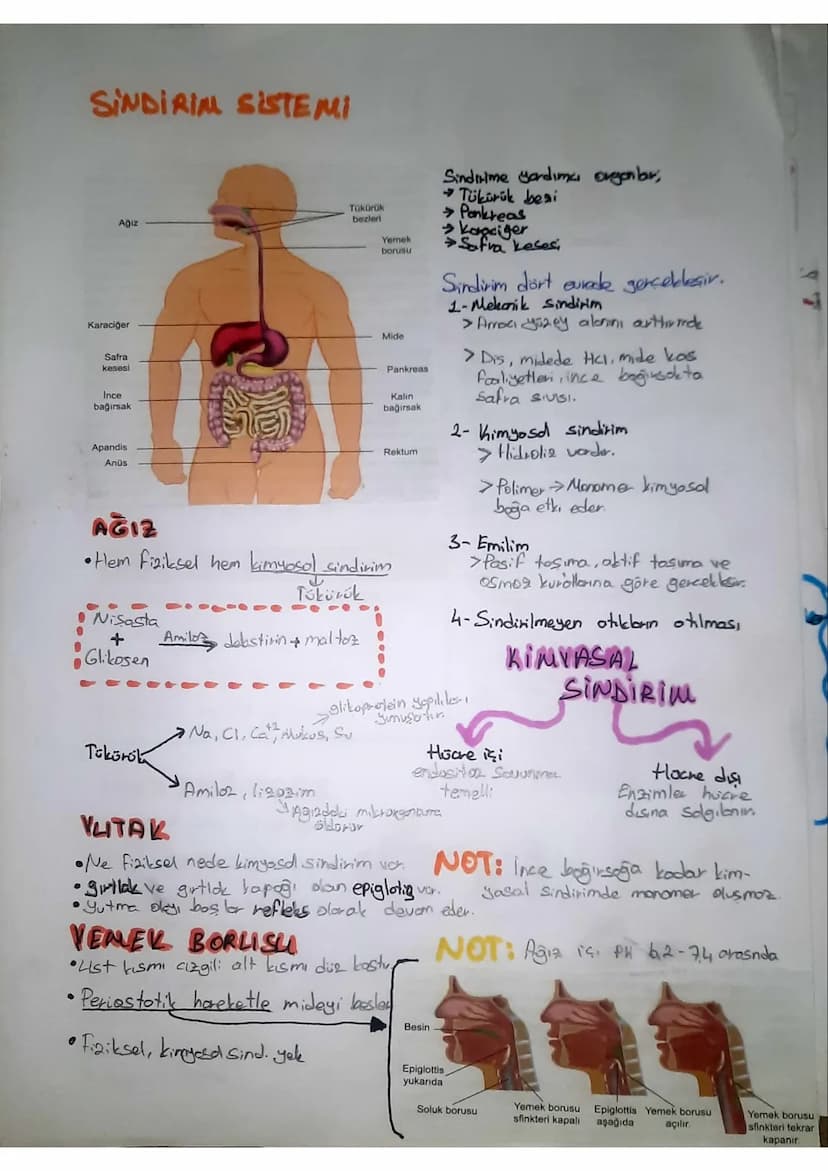 SİNDİRİM SİSTEMİ
Ağız
Tükürük
bezleri
Yemek
borusu
Karaciğer
Mide
Safra
kesesi
Pankreas
İnce
bağırsak
Kalın
bağırsak
Apandis
Rektum
Anüs
Sindirime yardımcı organlar;
→ Tükürük bezi
→ Pankreas
→ Karaciğer
→ Safra kesesi
Sindirim dört evrede gerçekleşir.
1- Mekanik sindirim
> Amacı yüzey alanını arttırmak
> Diş, midede HCl, mide kas
faaliyetleri, ince bağırsakta
safra sıvısı.
2- Kimyasal sindirim
> Hidroliz vardır.
> Polimer → Monomer kimyasal
bağa etki eder.
3- Emilim
> Pasif taşıma, aktif taşıma ve
osmoz kurallarına göre gerçekleşir.
4- Sindirilmeyen atıkların atılması
AĞIZ
• Hem fiziksel hem kimyasal sindirim
↓
Tükürük
Nişasta
+ Amilaz → dekstirin + maltoz
Glikojen
Tükürük
→ Na, Cl, Ca+2, Mukus, Su
→ glikoprotein yapılıları
yumuşatır.
→ Amilaz, lizozim
↳ Ağızdaki mikroorganizma
öldürür
KİMYASAL
SİNDİRİM
Hücre içi
endositoz savunma
temelli
Hücre dışı
Enzimler hücre
dışına salgılanır.
YUTAK
• Ne fiziksel nede kimyasal sindirim var.
• gırtlak ve gırtlak kapağı olan epiglotis var.
• Yutma olayı başlar refleks olarak devam eder.
NOT: İnce bağırsağa kadar kim-
yasal sindirimde monomer oluşmaz.
YEMEK BORUSU
• Üst kısmı çizgili alt kısmı düz kastır
• Peristatik hareketle mideyi besler
• Fiziksel, kimyasal sind. yok
NOT: Ağız içi PH 6,2-7,4 arasında
Besin
Epiglottis
yukarıda
Soluk borusu
Yemek borusu
sfinkteri kapalı
Epiglottis
aşağıda
Yemek borusu
açılır.
Yemek borusu
sfinkteri tekrar
kapanır.